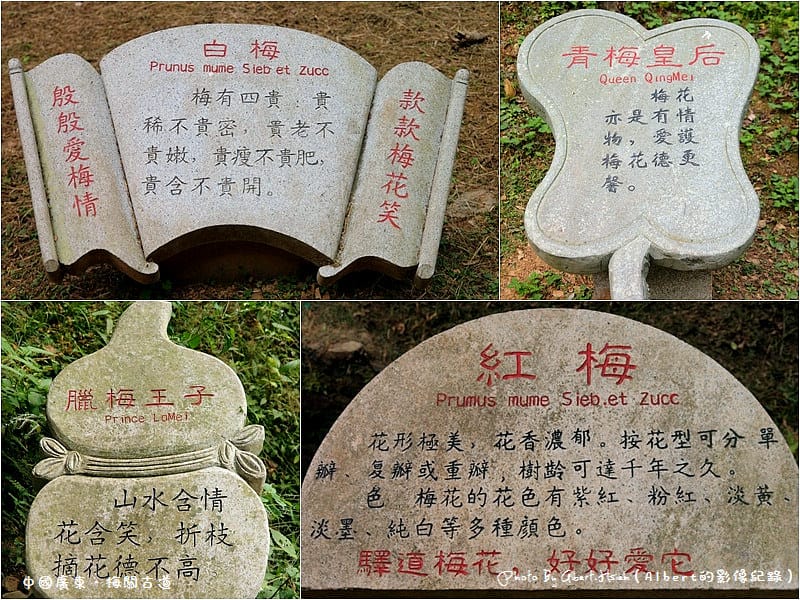 白梅
Prunus mume Sieb et Zucc
殷殷愛梅情
梅有四貴：貴
稀不貴密，貴老不
貴嫩，貴瘦不貴肥，
貴含不貴開。
款款梅花笑
青梅皇后
Queen QingMei
梅花
亦是有情
物，愛護
梅花德更
馨。
臘梅王子
Prince LaMei
山水含情
花含笑，折枝
摘花德不高
紅梅
Prumus mume Sieb.et Zucc
花形極美，花香濃郁。按花型可分單
瓣、复瓣或重瓣，樹齡可達千年之久。
色 梅花的花色有紫紅、粉紅、淡黃、
淡墨、純白等多種顏色。
驛道梅花，好好愛它
中國廣東‧梅關古道
Photo By Albert Hsieh (Albert的影像紀錄)